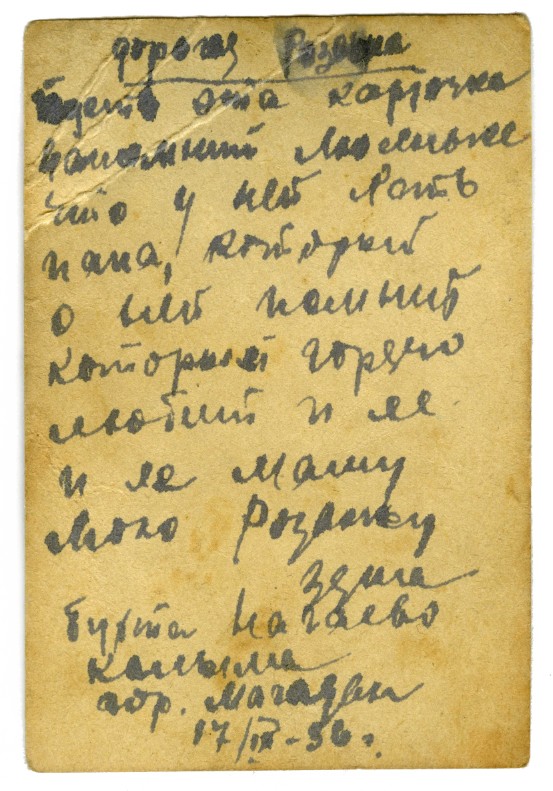 дорогая Розочка
Пусть эта карточка
напомнит Люсиньке
что у ней есть
папа, который
о ней помнит
который горячо
любит и ее
и ее маму
мою Розочку
Зяма
Бухта Нагаево
Колыма
гор. Магадан
17/IX-36 г.